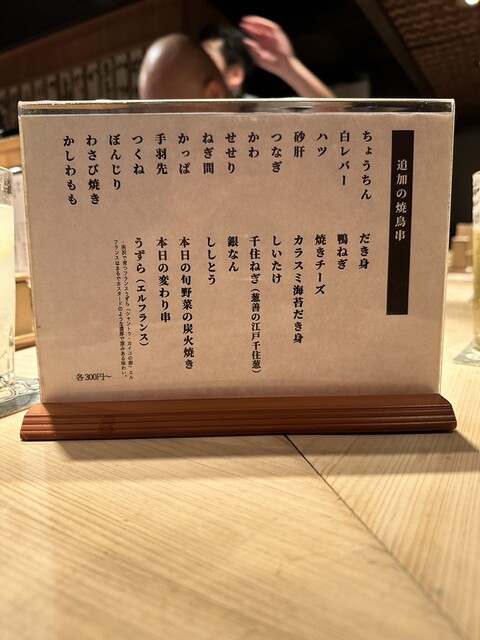 追加の焼鳥串
ちょうちん
白レバー
ハツ
砂肝
つなぎ
かわ
せせり
ねぎ間
かっぱ
手羽先
つくね
ぼんじり
わさび焼き
かしわもも
だき身
鴨ねぎ
焼きチーズ
カラスミ海苔だき身
しいたけ
千住ねぎ(葱善の江戸千住葱)
銀なん
ししとう
本日の旬野菜の炭火焼き
本日の変わり串
うずら(エルフランス)
フランスはまるでカスタードのような濃厚で厚みある味わい。
各300円〜